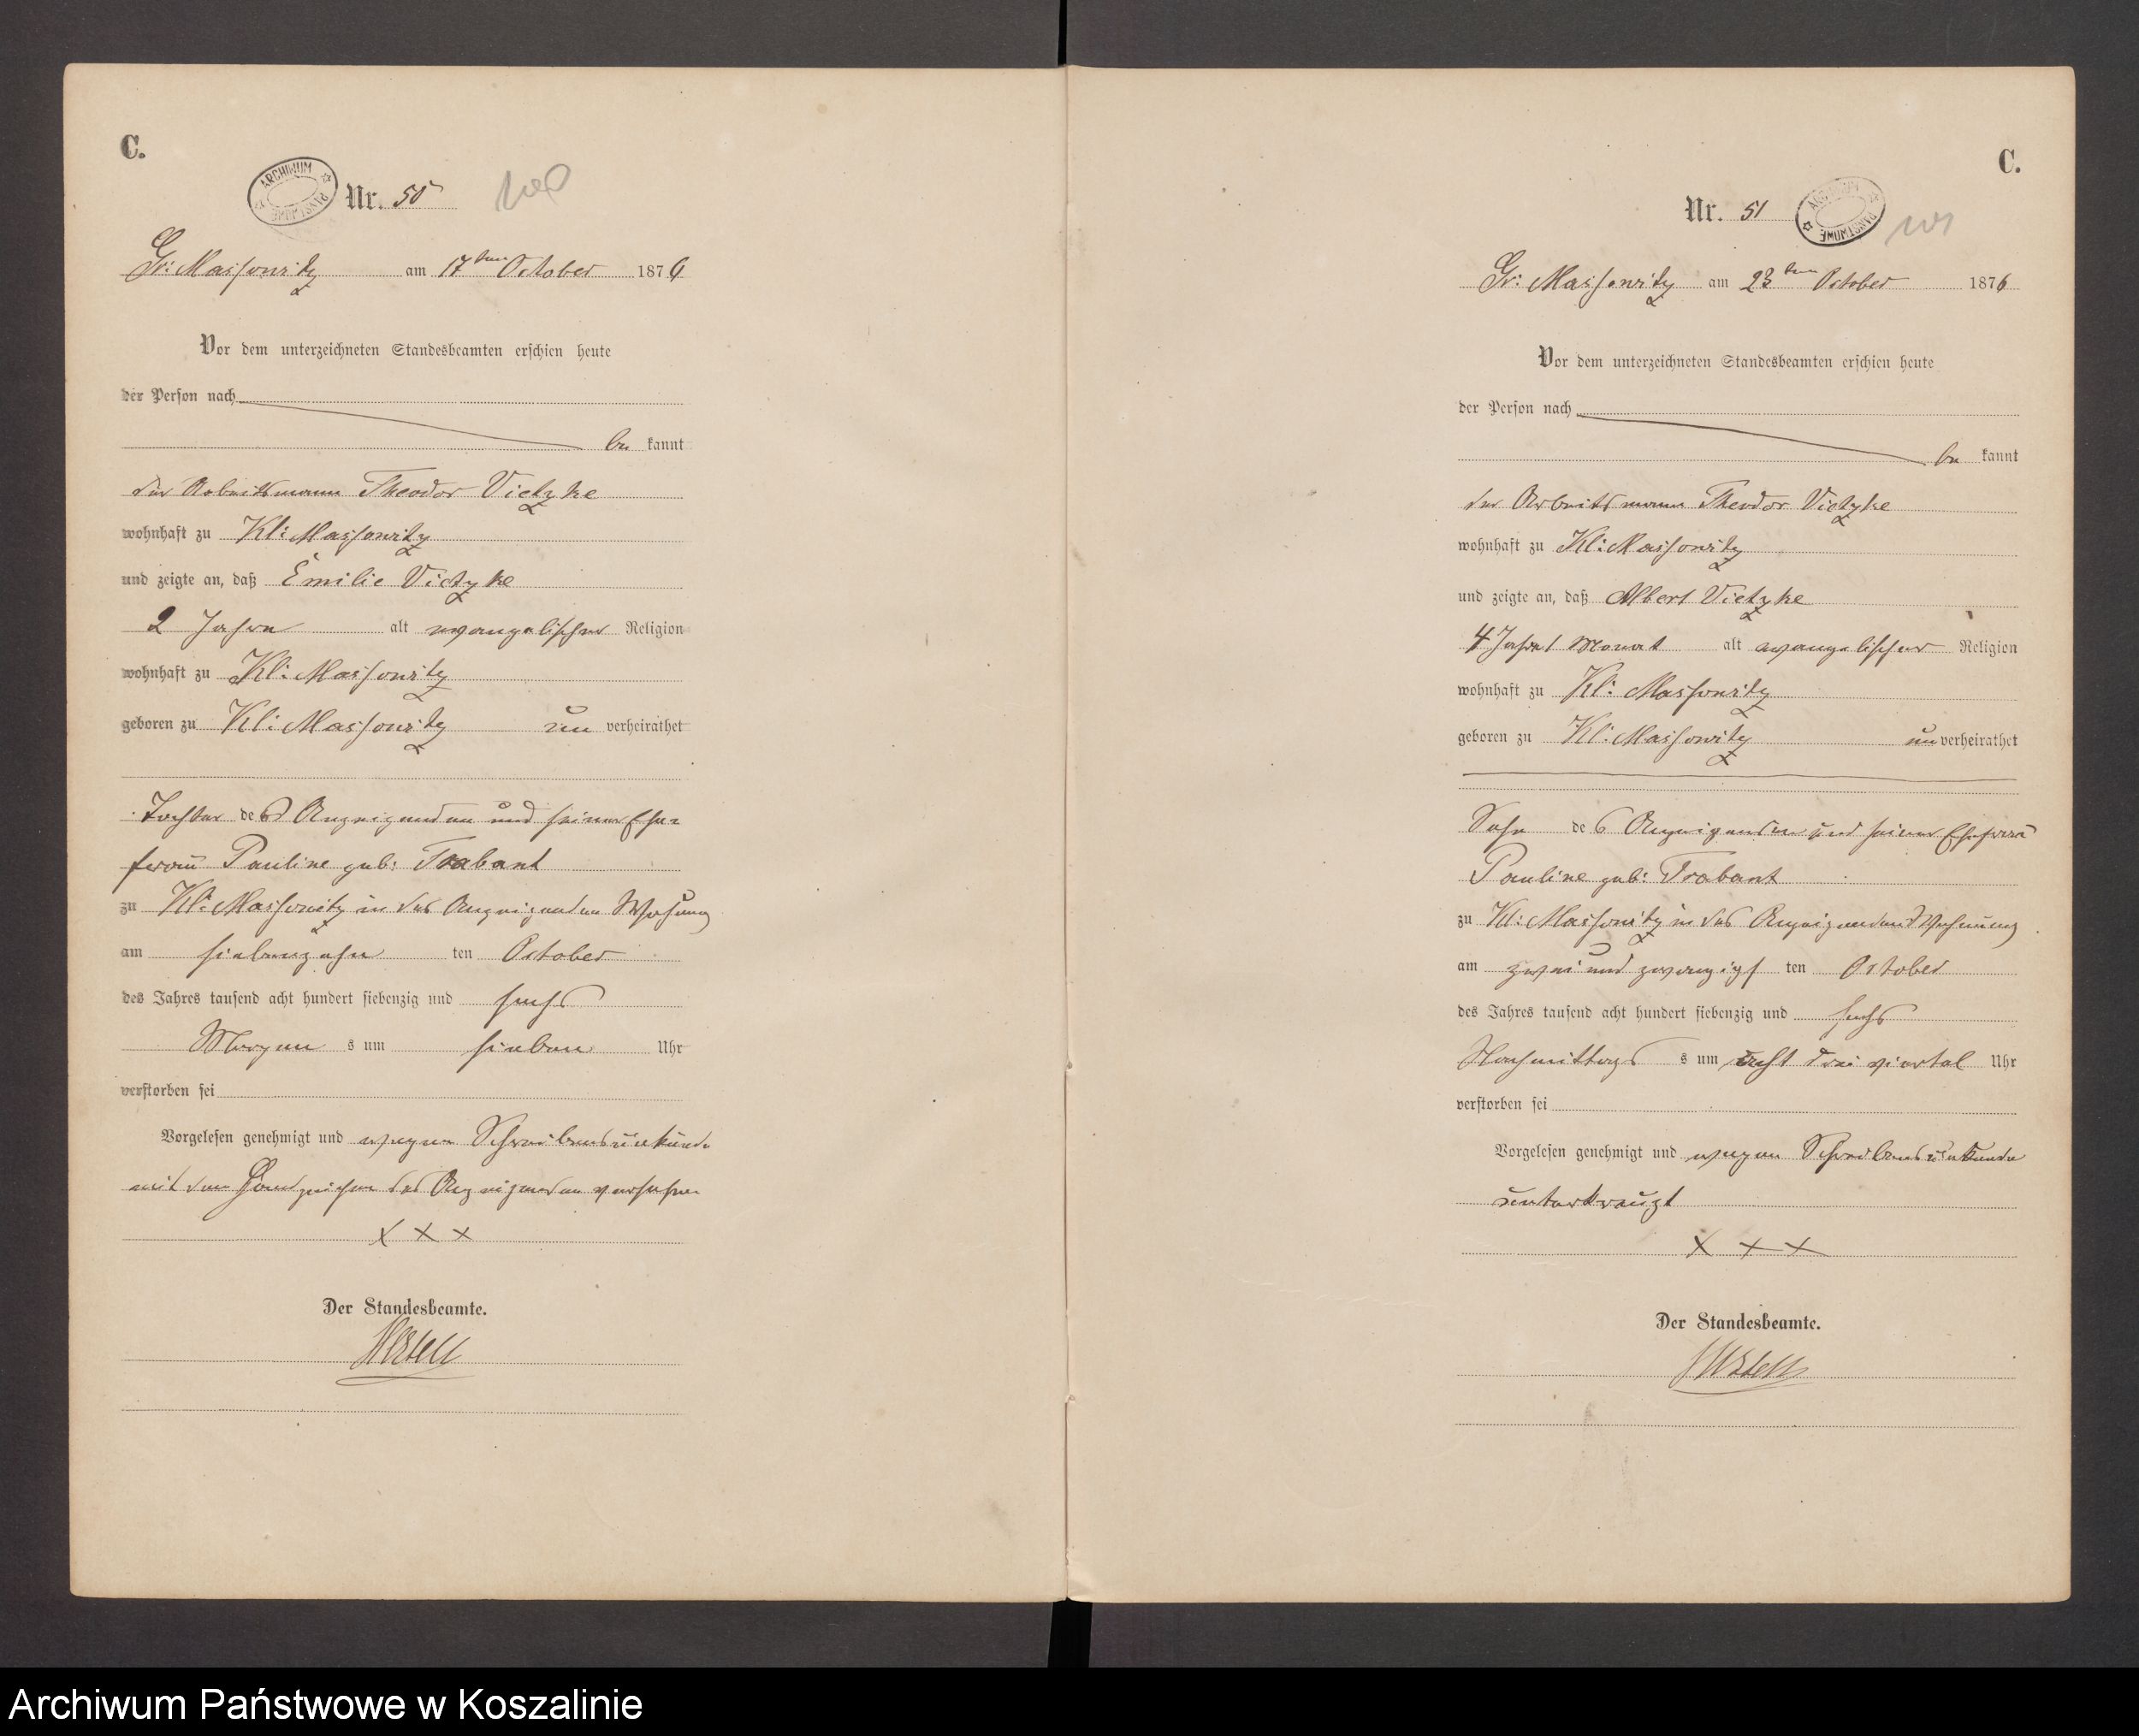 C.
ARCHIWUM PAŃSTWOWE
Nr. 50
100
Gr: Massowitz am 17ten October 1876
Vor dem unterzeichneten Standesbeamten erschien heute
der Person nach
be kannt
der Arbeitsmann Theodor Vietzke
wohnhaft zu Kl: Massowitz
und zeigte an, daß Emilie Vietzke
2 Jahre alt evangelischer Religion
wohnhaft zu Kl: Massowitz
geboren zu Kl: Massowitz un verheirathet
Tochter des Anzeigenden und seiner Ehe-
frau Pauline geb: Trabant
zu Kl: Massowitz in des Anzeigenden Wohung
am siebenzehn ten October
des Jahres tausend acht hundert siebenzig und sechs
Morgen s um sieben Uhr
verstorben sei
Vorgelesen genehmigt und wegen Schreibensunkunde
mit dem Handzeichen des Anzeigenden versehen
x x x
Der Standesbeamte.
C.
Nr. 51
ARCHIWUM PAŃSTWOWE
101
Gr: Massowitz am 23ten October 1876
Vor dem unterzeichneten Standesbeamten erschien heute
der Person nach
be kannt
der Arbeitsmann Theodor Vietzke
wohnhaft zu Kl: Massowitz
und zeigte an, daß Albert Vietzke
4 Jahre 1 Monat alt evangelischer Religion
wohnhaft zu Kl: Massowitz
geboren zu Kl: Massowitz un verheirathet
Sohn des Anzeigenden und seiner Ehefrau
Pauline geb: Trabant
zu Kl: Massowitz in des Anzeigenden Wohnung
am zwei und zwanzigs ten October
des Jahres tausend acht hundert siebenzig und sechs
Nachmittags s um acht drei viertel Uhr
verstorben sei
Vorgelesen genehmigt und wegen Schreibensunkunde
unterkreuzt
x x x
Der Standesbeamte.
Archiwum Państwowe w Koszalinie